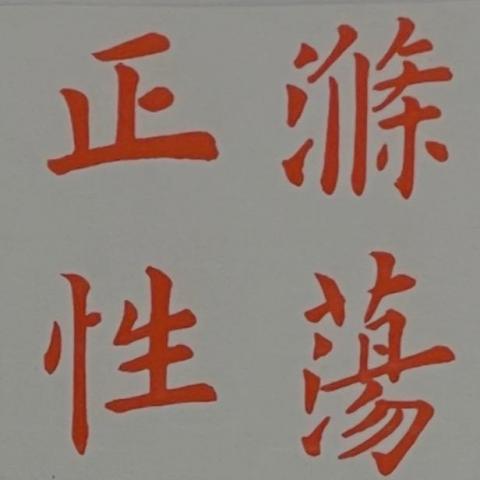 滌蕩
正性